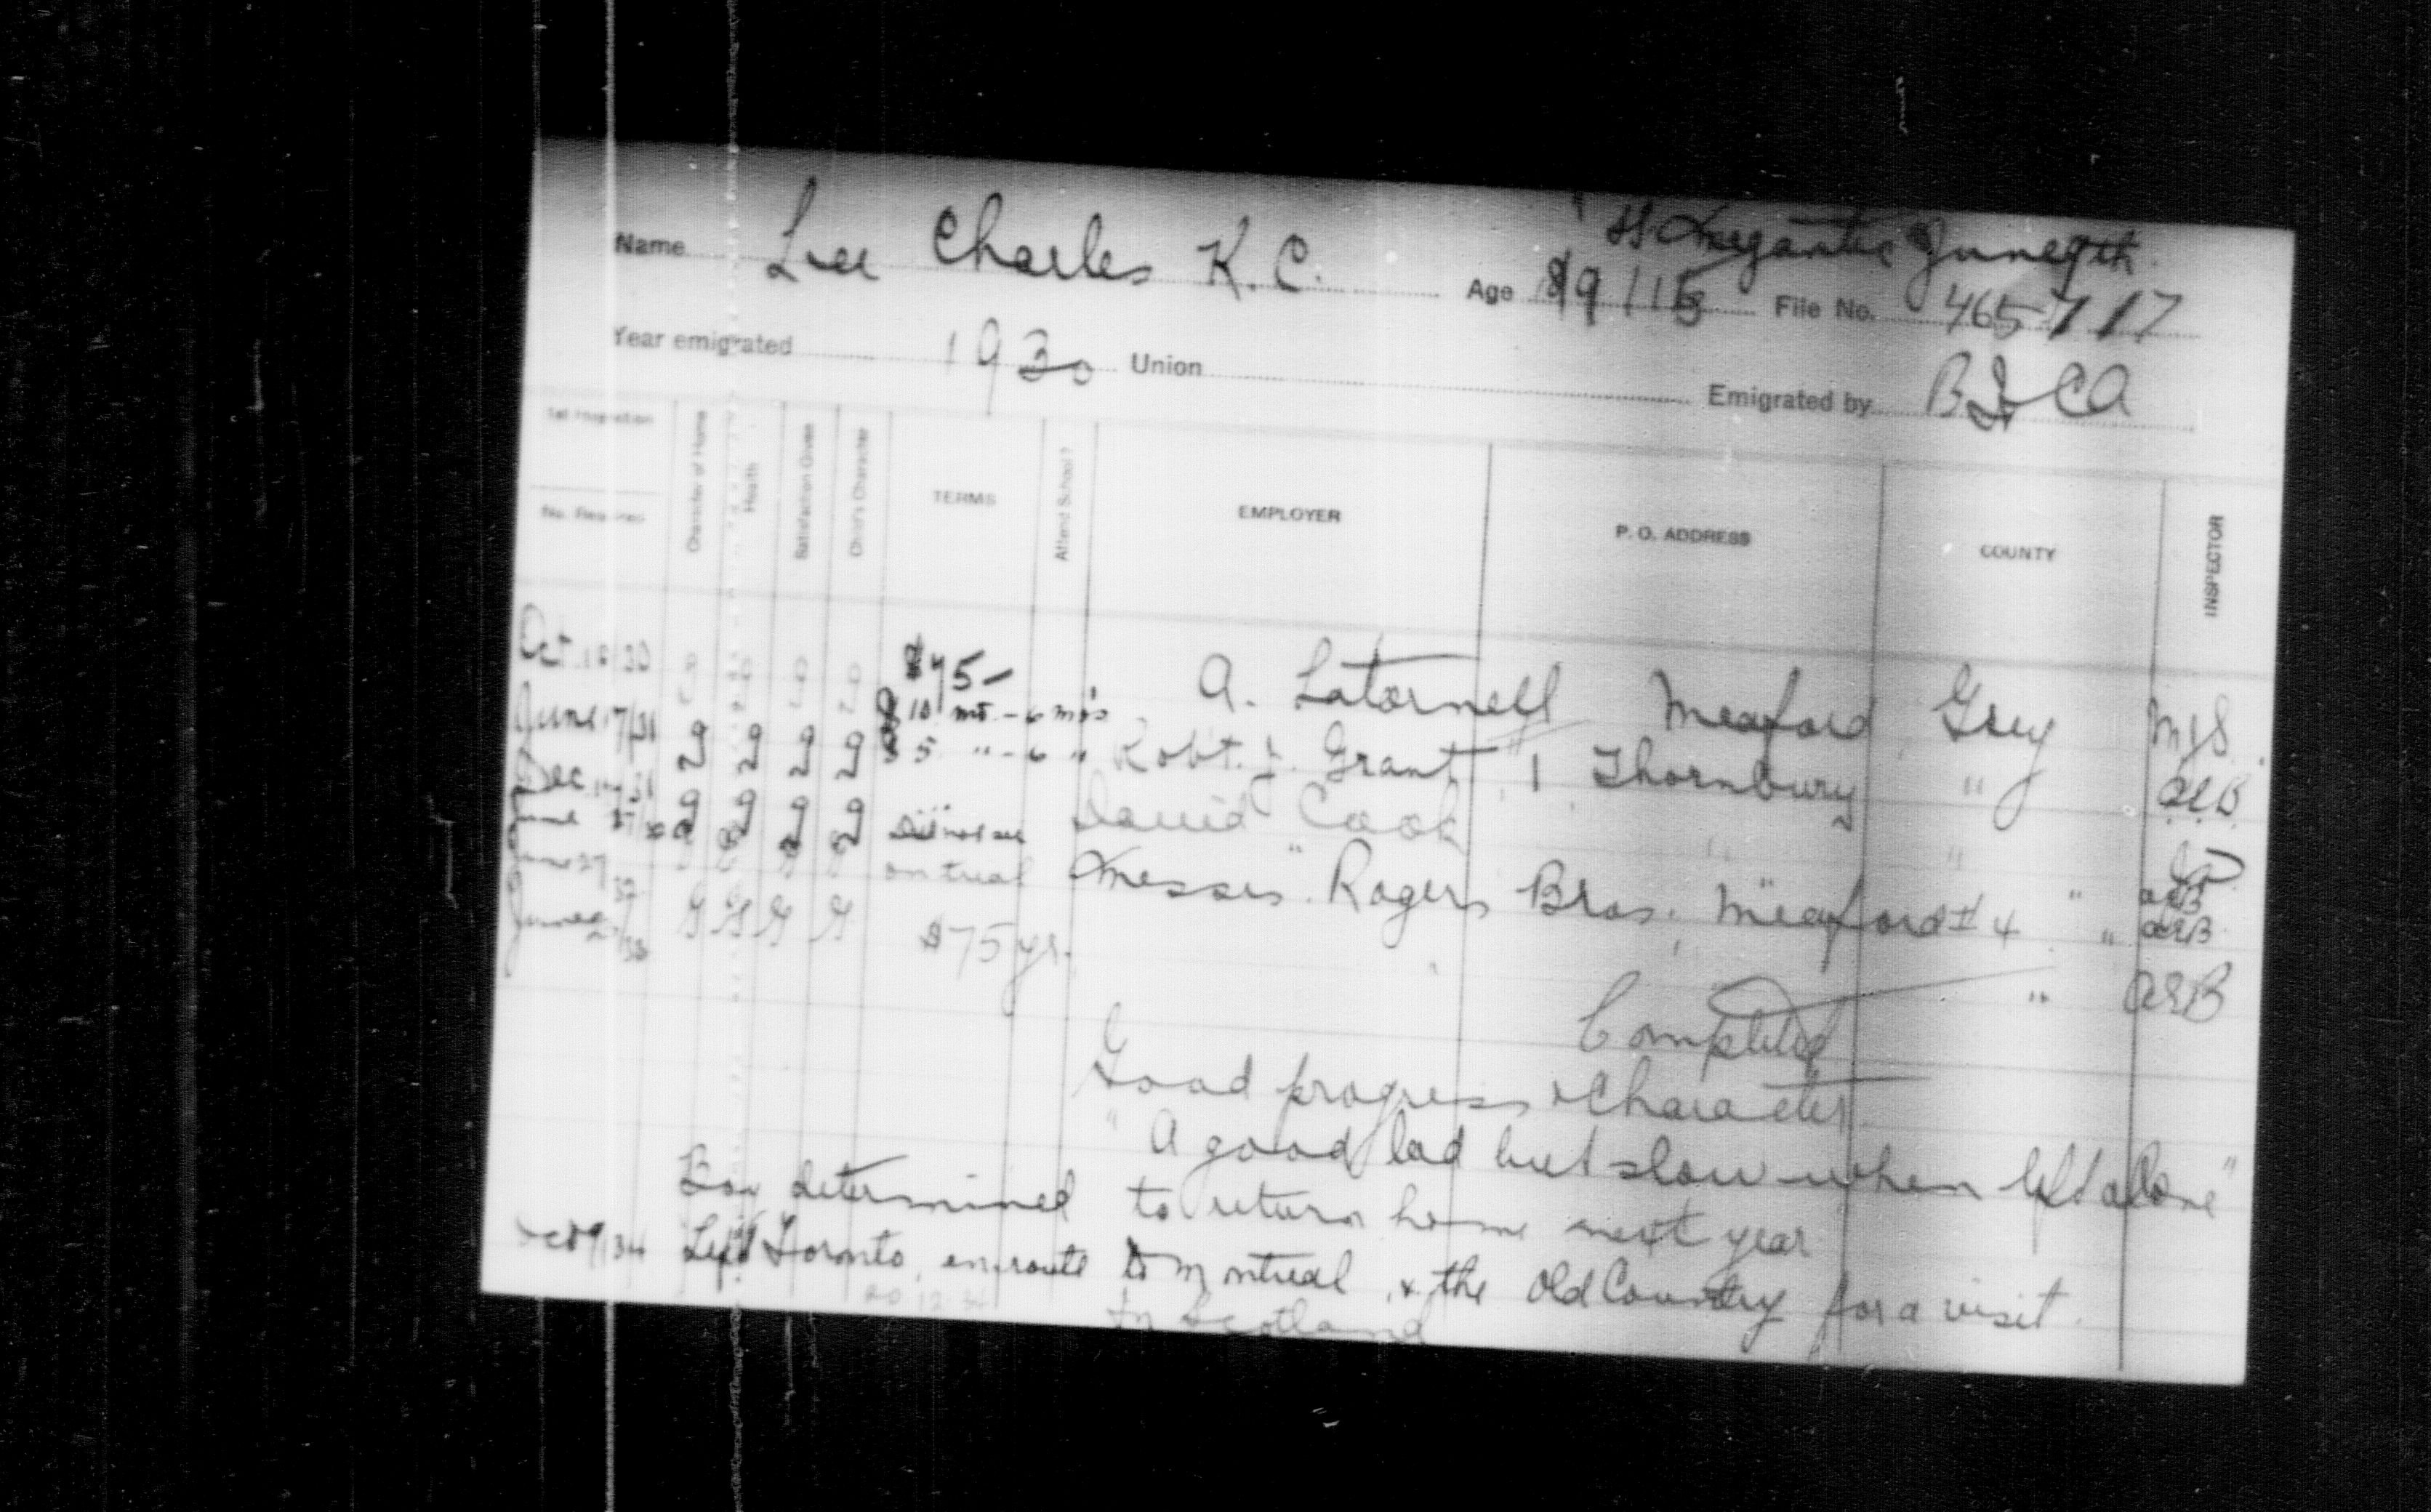 SS Megantic June 9th
Name Lee Charles K. C. Age File No. 465717
Year emigrated 1930 Union Emigrated by B I C A
1st Inspection
No. Required
Character of Home
Health
Satisfaction Given
Child's Character
TERMS
Attend School?
EMPLOYER
P. O. ADDRESS
COUNTY
INSPECTOR
Oct 30 G G G G A. Latornell Meaford Grey MJS
June 17/31 g g g g $10 mt. - 6 mos Robt. J. Grant 1 Thornbury " A.E.B.
$5 " - 6 "
Dec 31 g g g g David Cook " "
June 27/32 Did not see " AEB
June 27/32 on trial Messrs. Rogers Bros. Meaford # 4 " AEB
June 33 G G G G $75 yr. " " " AEB
Completed
Good progress & Character
"A good lad but slow when left alone"
Boy determined to return home next year
9/34 Left Toronto enroute to Montreal & the Old Country for a visit.
to Scotland